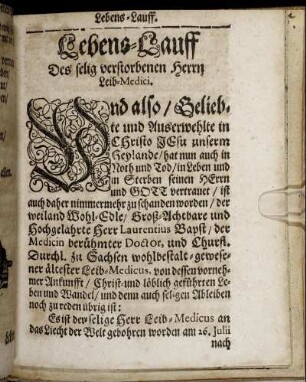 Lebens-Lauff.
Lebens-Lauff
Des selig verstorbenen Herrn
Leib-Medici.
Und also / Gelieb-
te und Auserwehlte in
CHristo JEsu unserm
Heylande / hat nun auch in
Noth und Tod / in Leben und
in Sterben seinen HErrn
und GOTT vertrauet / ist
auch daher nimmermehr zu schanden worden / der
weiland Wohl-Edle / Groß-Achtbare und
Hochgelahrte / Herr Laurentius Bapst / der
Medicin berühmter Doctor, und Churfl.
Durchl. zu Sachsen wohlbestalt-gewese-
ner ältester Leib-Medicus. von dessen vorneh-
mer Ankunfft / Christ-und löblich geführten Le-
ben und Wandel / und denn auch sel-gen Ableiben
noch zu reden übrig ist:
Es ist der selige Herr Leib-Medicus an
das Liecht der Welt gebohren worden am 26. Julii
nach